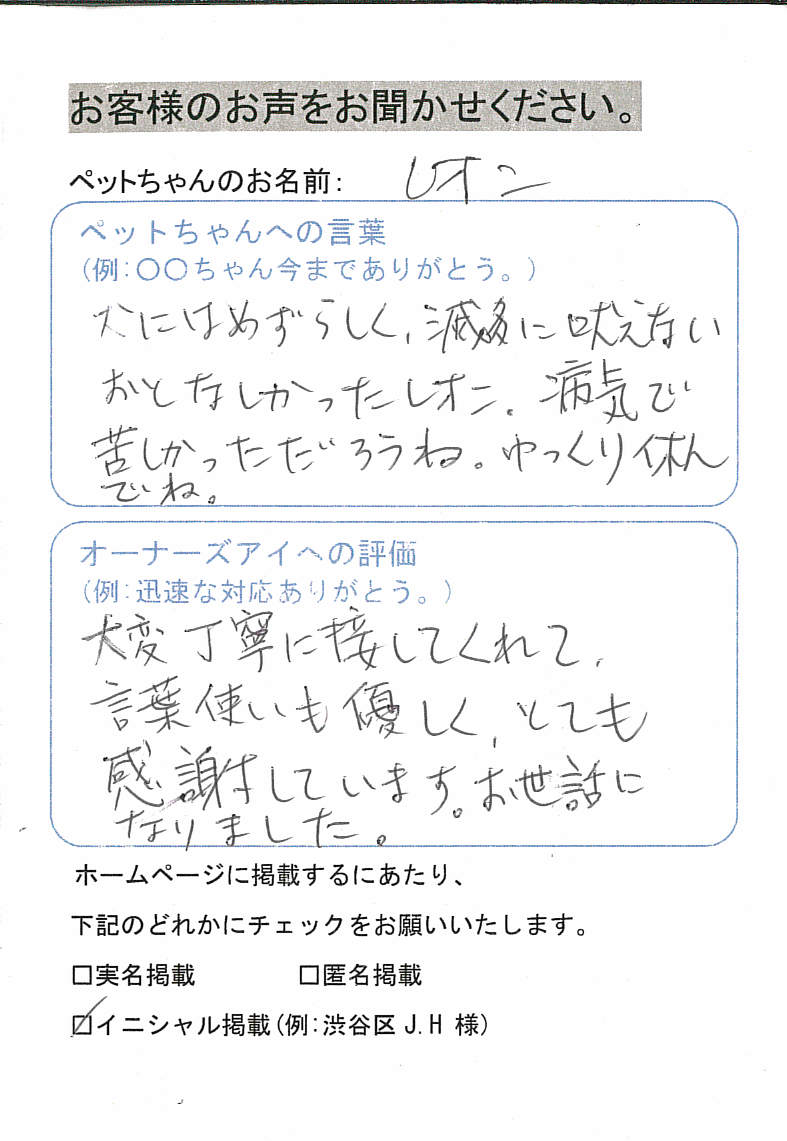 お客様のお声をお聞かせください。
ペットちゃんのお名前: レオン
ペットちゃんへの言葉
(例:〇〇ちゃん今までありがとう。)
犬にはめずらしく、滅多に吠えない
おとなしかったレオン。病気で
苦しかっただろうね。ゆっくり休ん
でいね。
オーナーズアイへの評価
(例:迅速な対応ありがとう。)
大変丁寧に接してくれて、
言葉使いも優しく、とても
感謝しています。お世話に
なりました。
ホームページに掲載するにあたり、
下記のどれかにチェックをお願いいたします。
□実名掲載 □匿名掲載
☑イニシャル掲載(例:渋谷区 J.H 様)